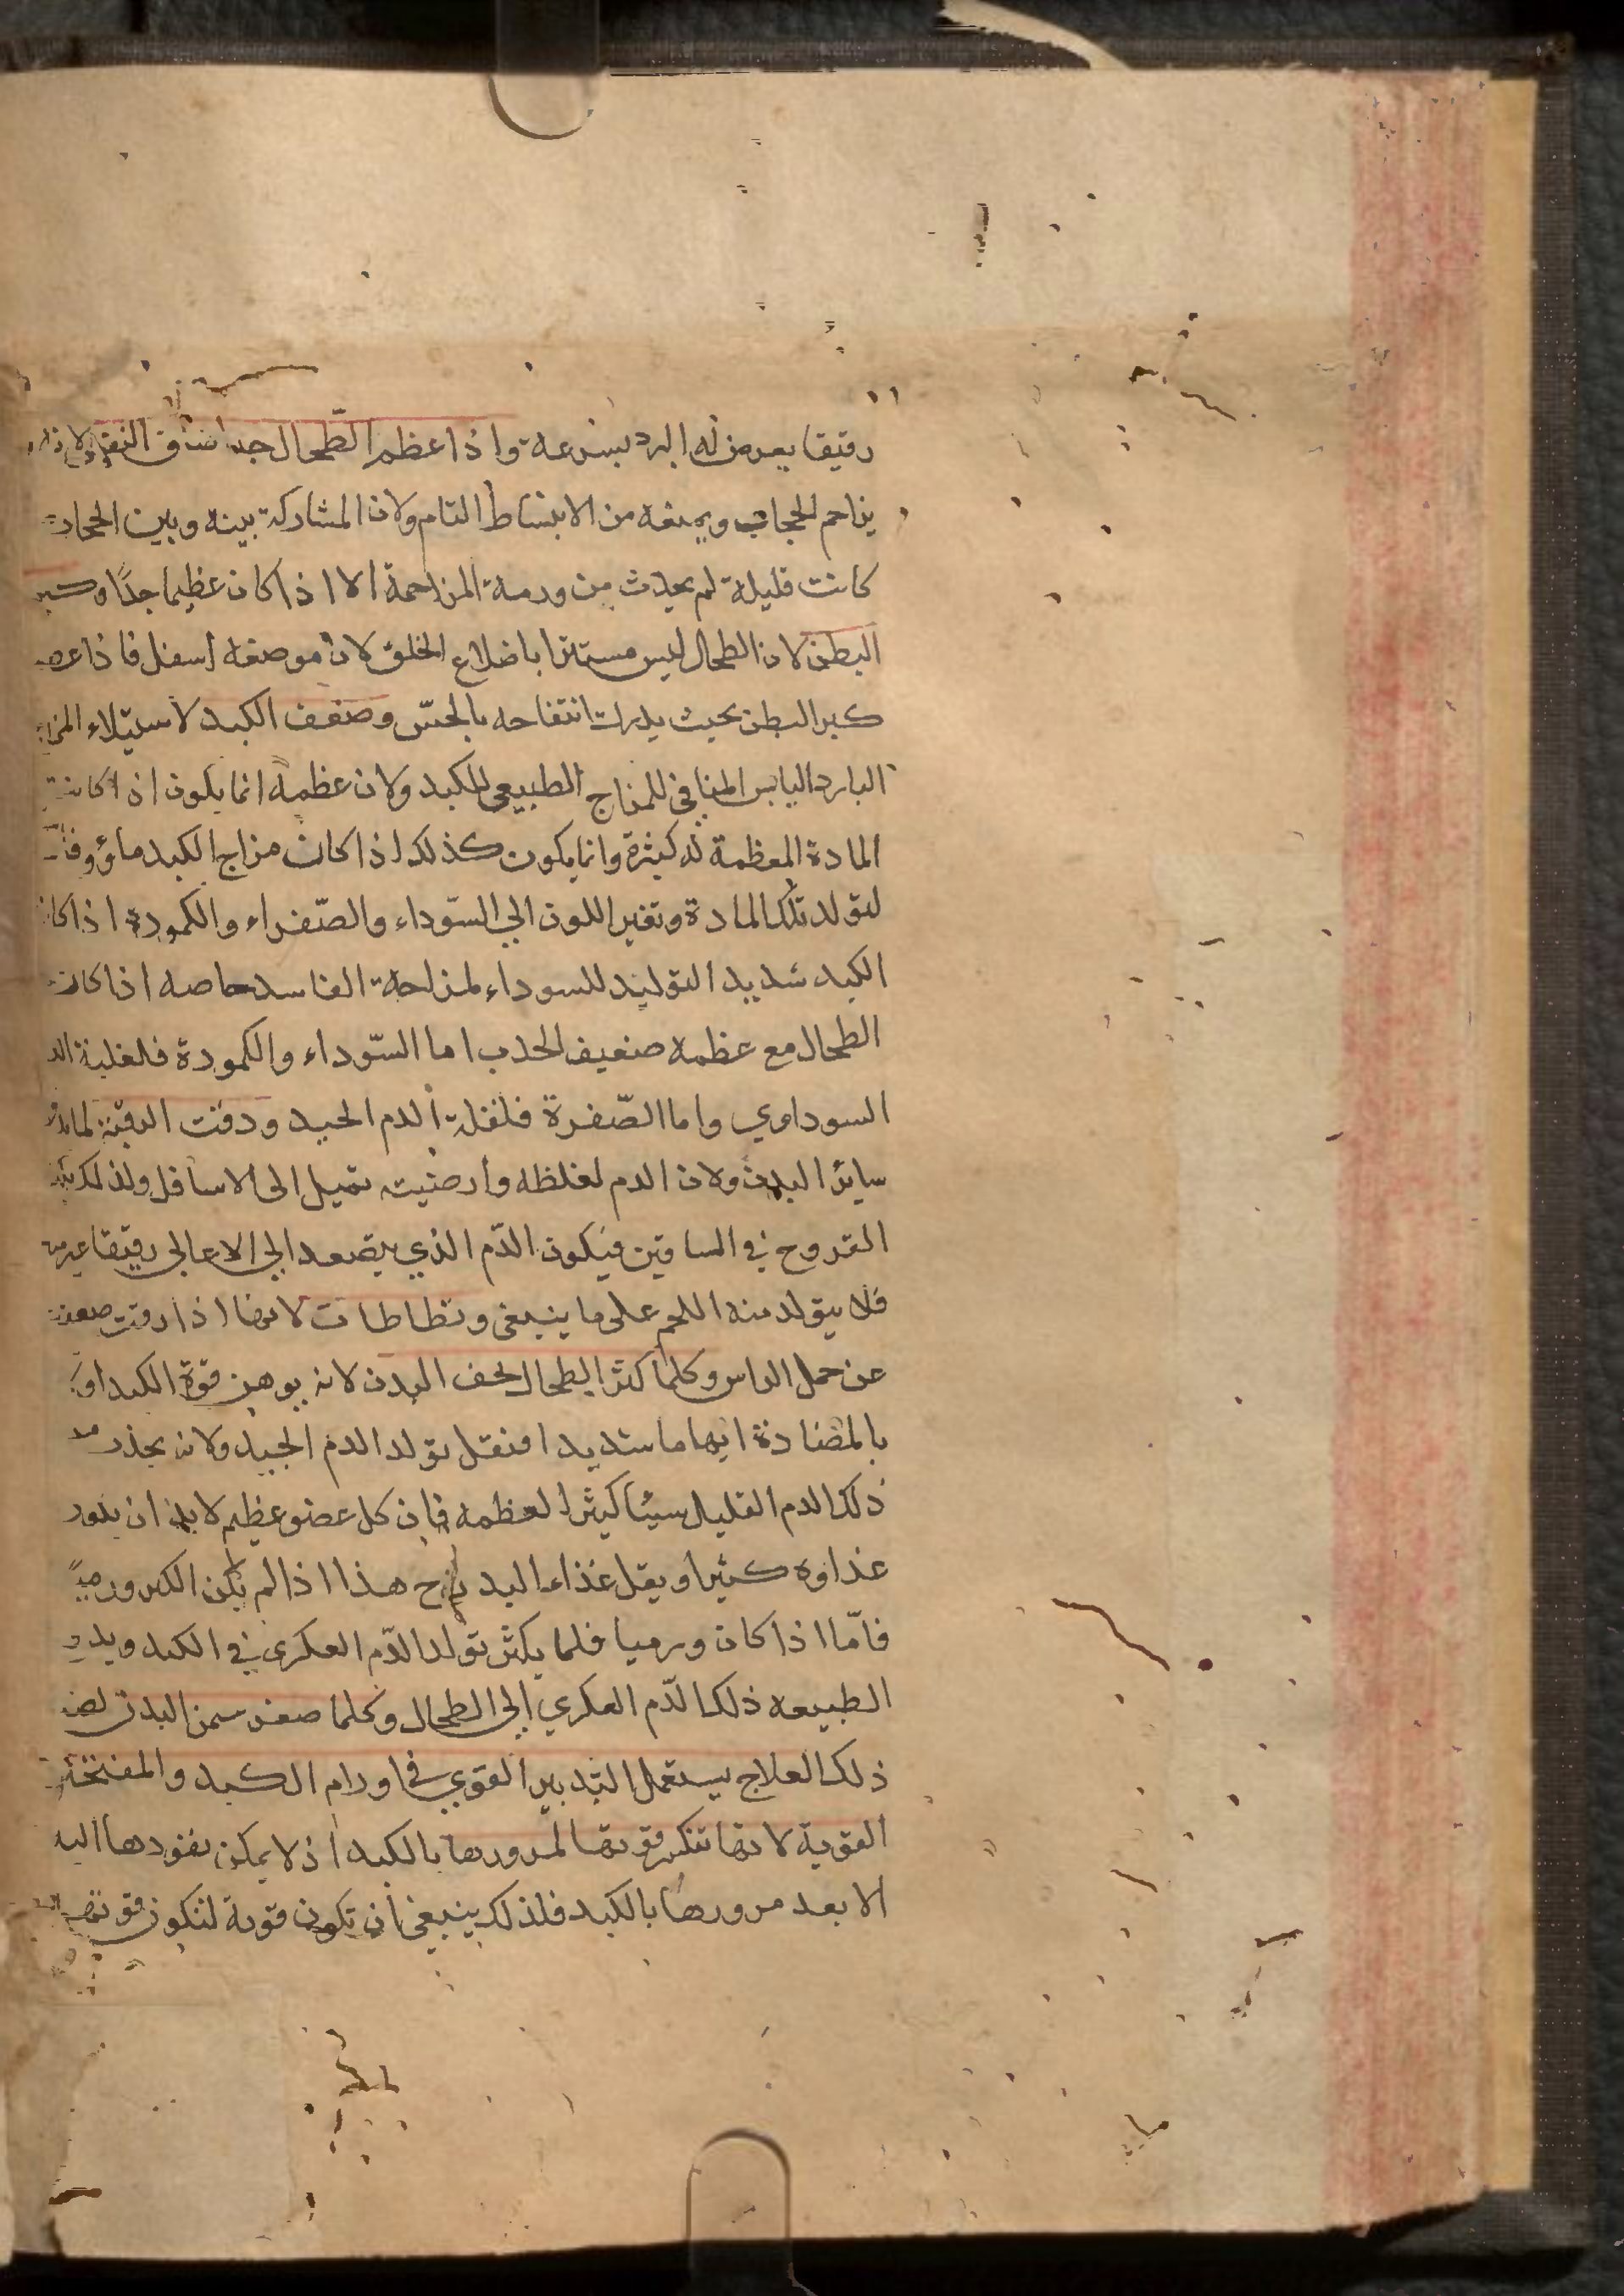 رقيقا يعرض له البرد بسرعة واذا عظم الطّحال جدا ضاق النفس لانه
يزاحم الحجاب ويمنعه من الانبساط التام ولان المشاركة بينه وبين الحجاب
كانت قليلة لم يحدث من ورمة المزاحمة الا اذا كان عظيما جدًا وكبر
البطن لان الطحال ليس مستترا باضلاع الخلق لان موضعه اسفل فاذا عرض
كبر البطن بحيث يدرك انتفاخه بالحسّ وضعف الكبد لاستيلاء المزاج
البارد اليابس المنافى للمزاج الطبيعى للكبد ولان عظمه انما يكون اذا كانت
المادة المعظمة له كثيرة وانما يكون كذلك اذا كان مزاج الكبد ماؤوفا
لتولد تلك المادة وتغير اللون الى السّوداء والصّفراء والكمودة اذا كان
الكبد شديد التوليد للسوداء لمزاجه الفاسد خاصه اذا كان
الطحال مع عظمه ضعيف الجذب اما السّوداء والكمودة فلغلبة الدم
السوداوي واما الصّفرة فلقلة الدم الجيد ودقت الرقبة لما
سائر البدن ولان الدم لغلظه وارضيته تميل الى الاسافل ولذلك
القروح في الساقين فيكون الدّم الذي يتصعد الى الاعالى رقيقا غير
فلا يتولد منه اللحم على ما ينبغى وتطاطات لانها اذا دقت ضعفت
عن حمل الراس وكلما كثر الطحال نحف البدن لانه يوهن قوة الكبد
بالمضادة ايهاما شديدا فيقل تولد الدم الجيد ولانه يجذب من
ذلك الدم القليل شيئا كثيرا لعظمه فان كل عضو عظيم لابد ان يكون
غذاوه كثيرا ويقل غذاء البدن ح هذا اذا لم يكن الكبر ورميًا
فامّا اذا كان ورميا فلما يكثر تولد الدّم العكرى في الكبد ويدفع
الطبيعه ذلك الدّم العكري الى الطحال وكلما صغر سمن البدن لضد
ذلك العلاج يستعمل التدبير القوي فى اورام الكبد والمفتحة
القوية لانها تنكسر قوتها لمرورها بالكبد اذ لا يمكن نفوذها اليه
الا بعد مرورها بالكبد فلذلك ينبغى ان تكون قوية لتكون قوتها